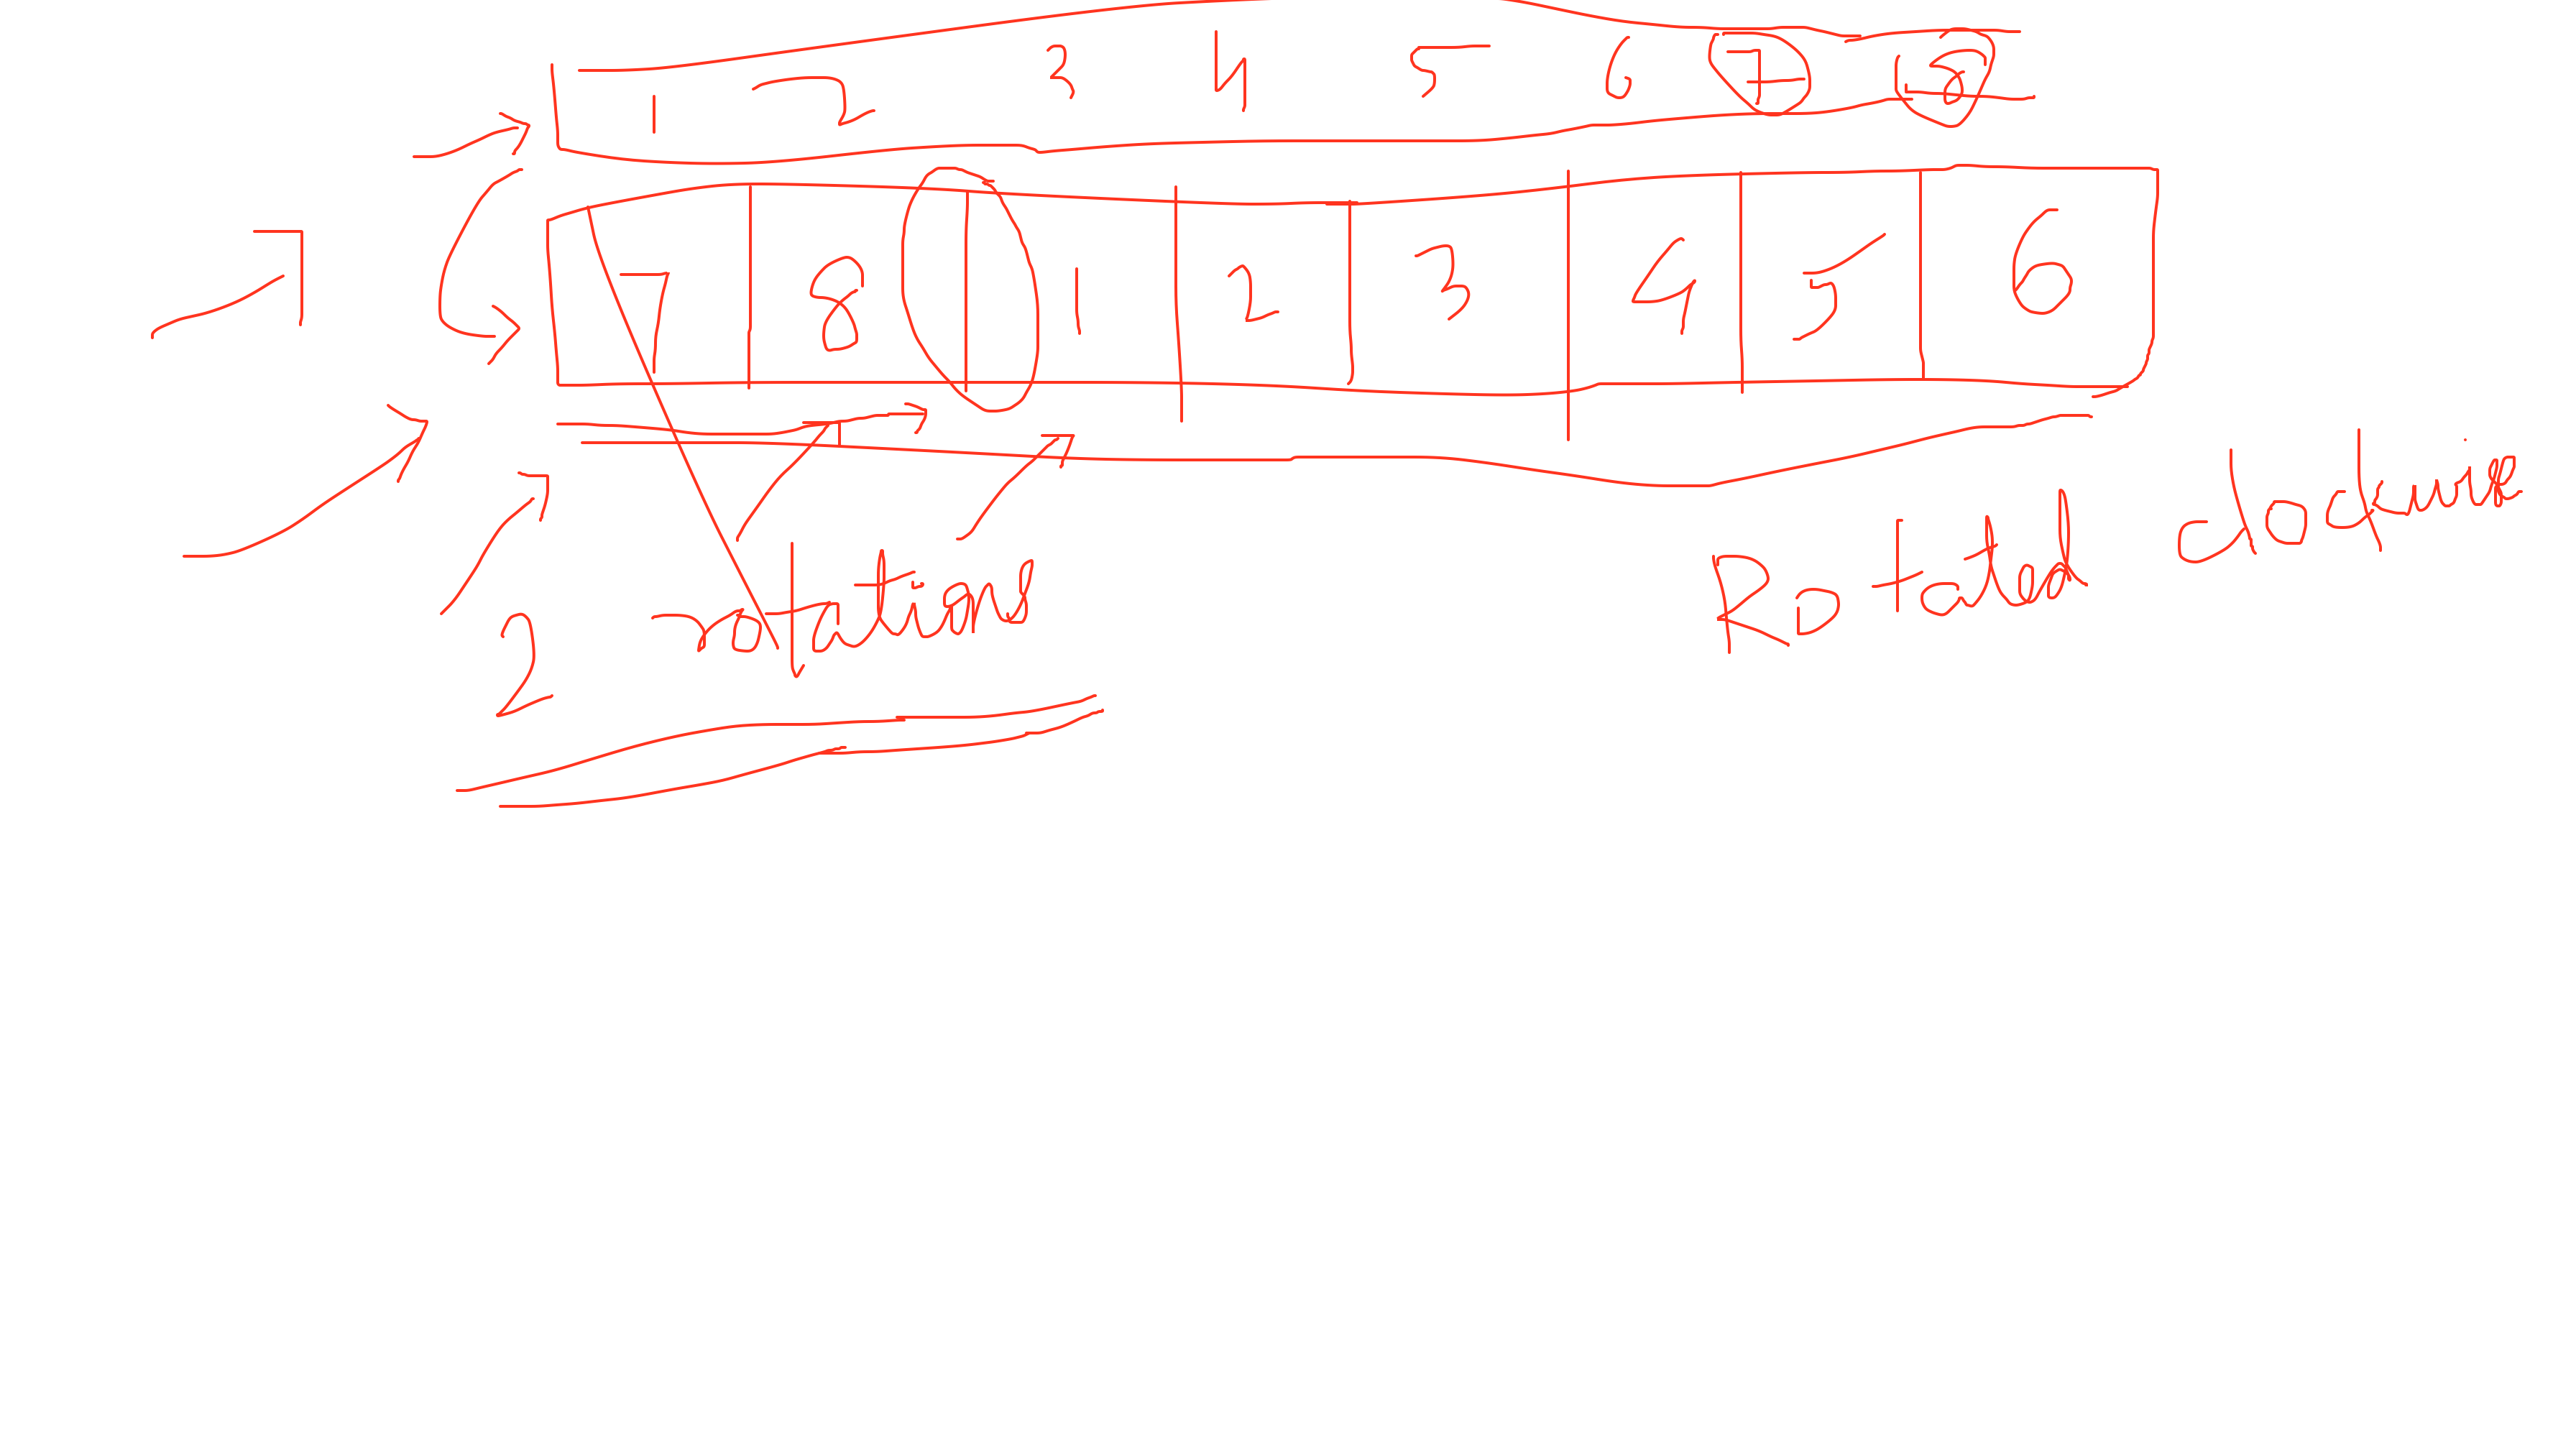 1 2 3 4 5 6 7 8
7 8 1 2 3 4 5 6
2 rotations
Rotated clockwise